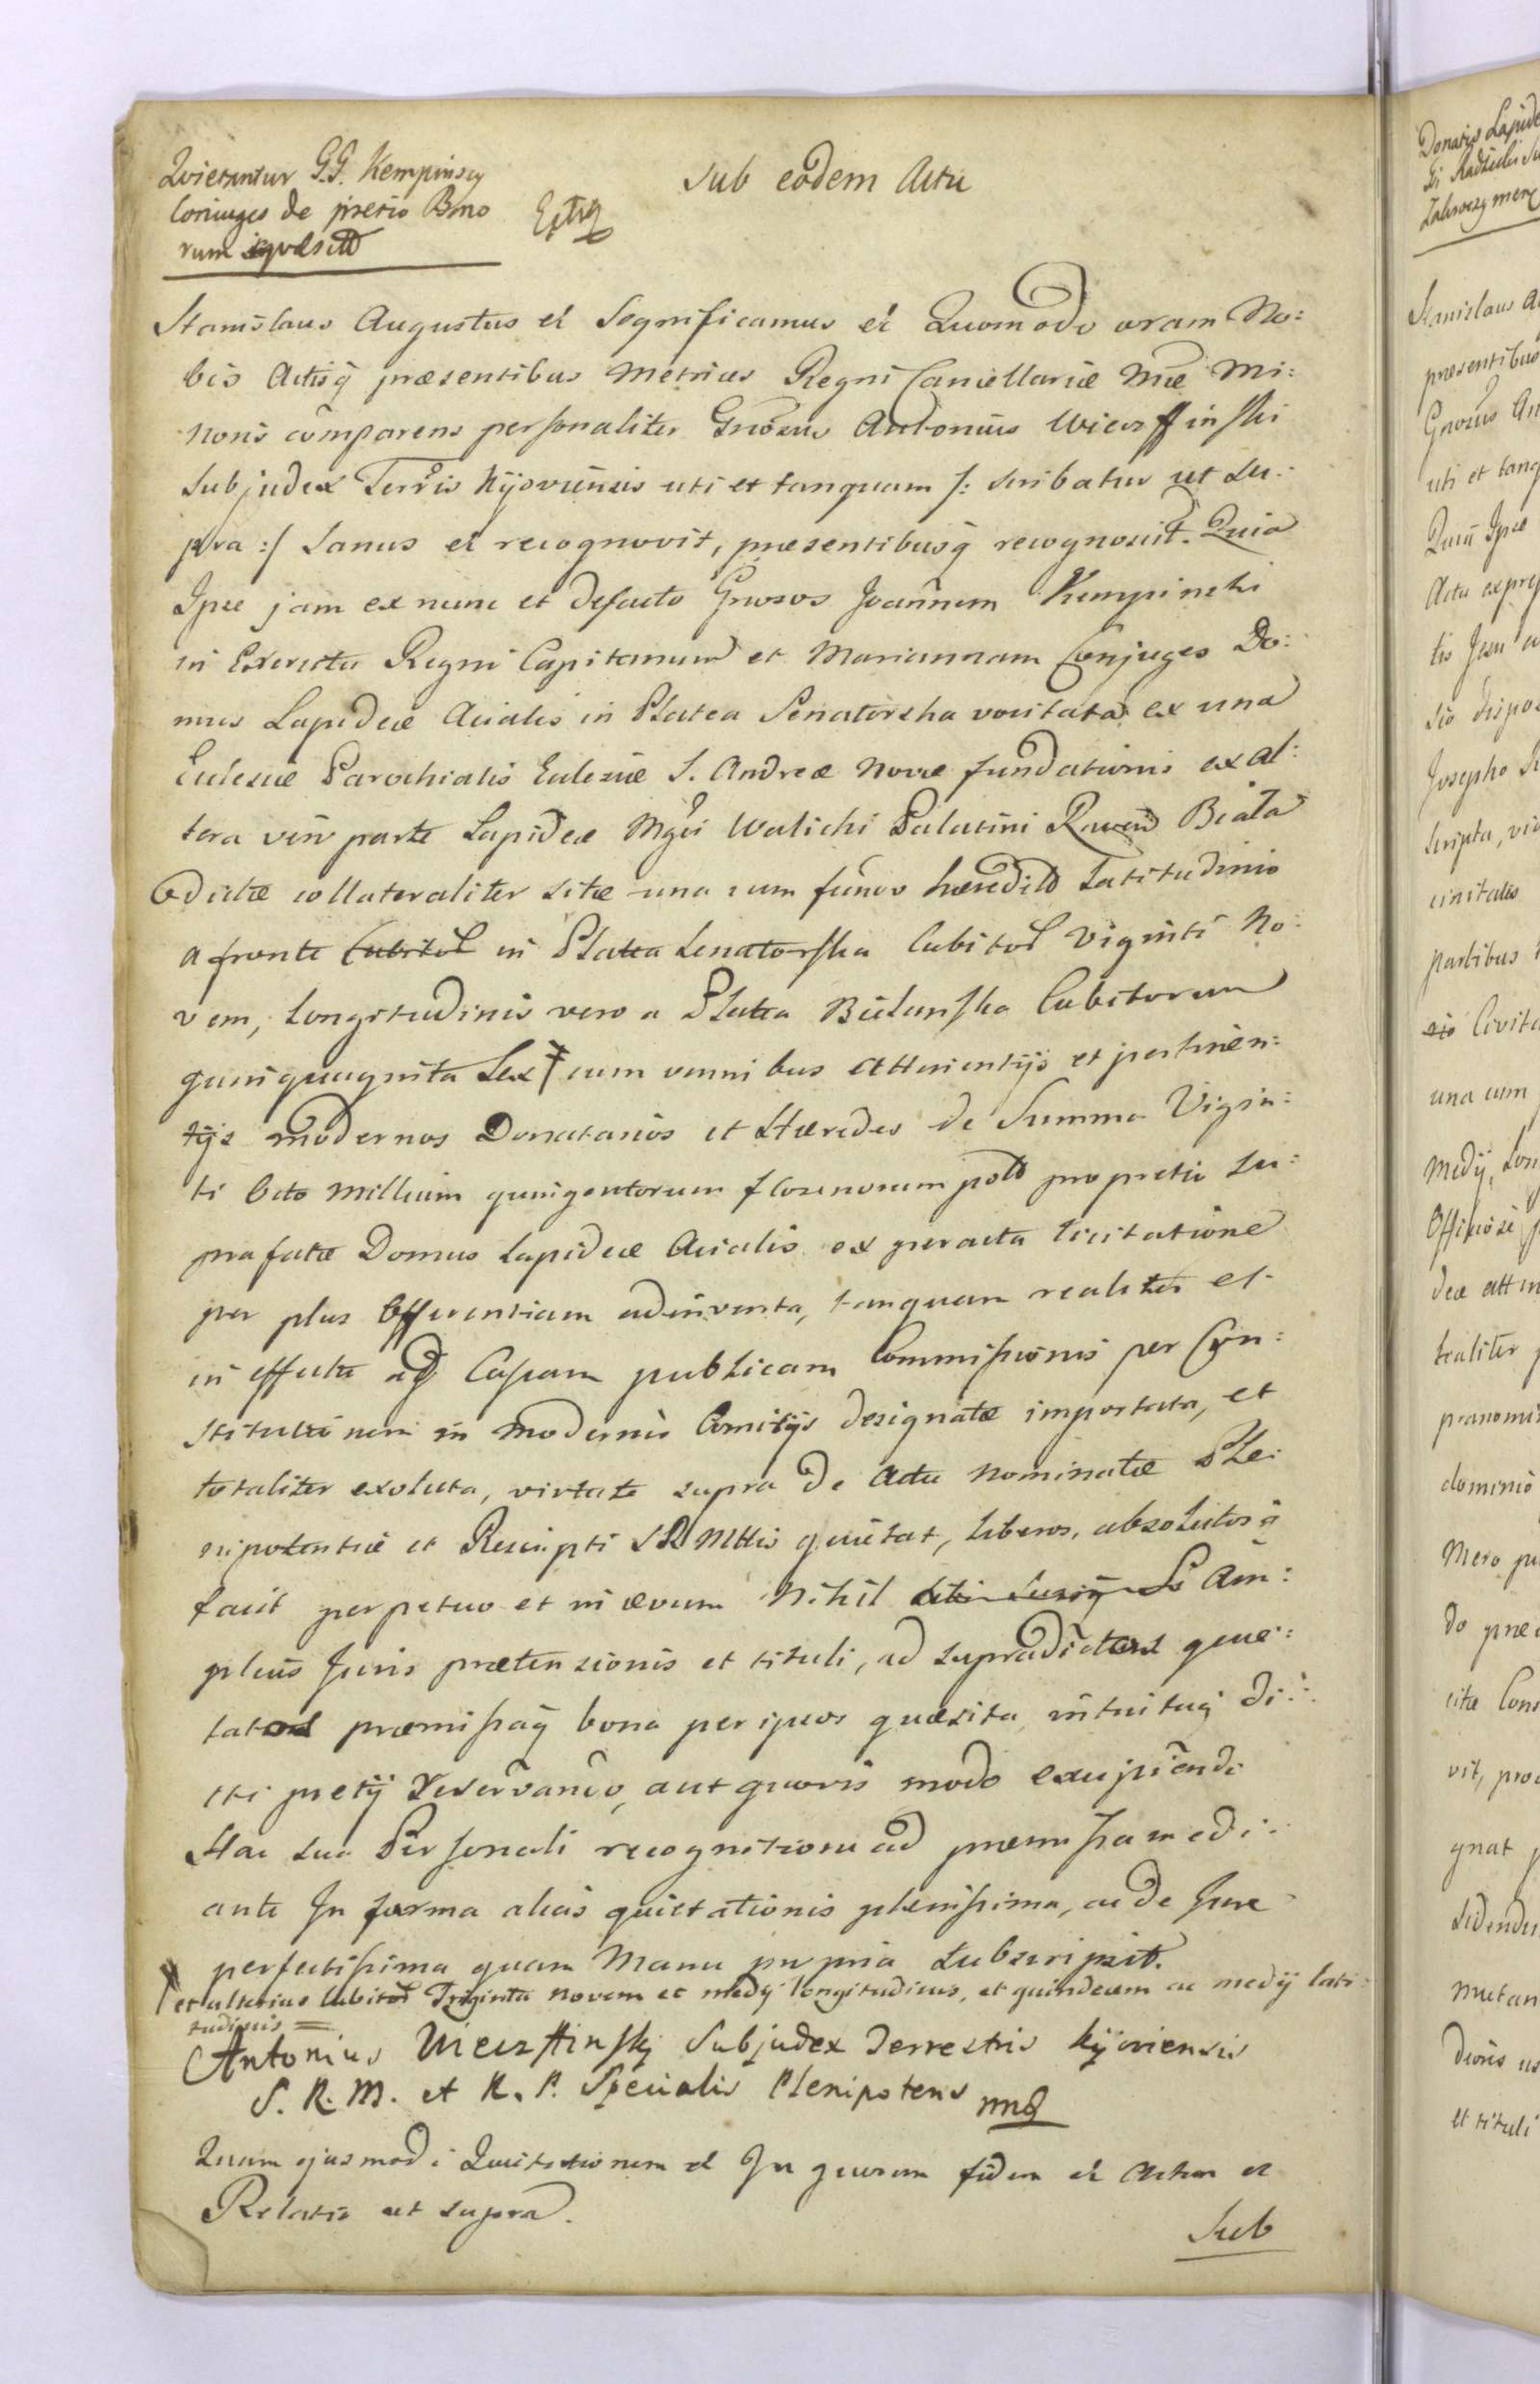 Quietantur G.G. Kempinscy
Coniuges de pretio Bno
rum
Sub eodem Actu
Stanislaus Augustus et Significamus et Quomodo coram No:
bis Actisq̃ præsentibus Metrices Regni Cancellariæ Mñe Mi:
noris comparens personaliter Gñosus Antonius Wiersztinski
Subjudex Terr̃is Kijoviensis uti et tanquam /: scribatur ut Su:
pra :/ Sanus et recognovit, præsentibusq̃ recognoscit. Quia
Ipse jam ex nunc et defacto Gñosos Joannem Kempinski
in Exercitu Regni Capitanum et Mariannam Conjuges Do:
mus Lapideæ Acialis in Platea Senatorska vocitata ex una
Ecclesiæ Parochialis Ecclesiæ S. Andreæ Novæ fundationis ex al:
tera vero parte Lapideæ Mgci Walicki Palatini Raven Biała
dictæ collateraliter sitæ una cum fundo hæredito Latitudinis
a fronte Cubitol in Platea Senatorska Cubitol Viginti No:
vem, longitudinis vero a Platea Bielanska Cubitorum
quinquaginta Sex cum omnibus attinentijs et pertinen:
tijs modernos Donatarios et Hæredes de Summa Vigin:
ti Octo Millium quingentorum florenorum pold pro pretio su:
prafatæ Domus Lapideæ Acialis ex peracta licitatione
per plus Offerentiam adinventa, tanquam realiter et
in effectu ad Cassam publicam Commissionis per Con:
stitutionem in modernis Comitijs designatæ importata, et
totaliter exoluta, virtute supra de Actu nominatæ Ple:
nipotentiæ et Rescripti S R Mttis quietat, liberos, absolutosq̃
facit perpetuo et in ævum Nihil Am:
plius Juris prætensionis et tituli, ad supradictos quie:
tatos præmissaq̃ bona per ipsos quæsita intuituq̃ di:
cti pretij reservando, aut quovis modo excipiendo
Hac sua Personali recognitione ad præmissa medi:
ante In forma alias quietationis plenissima, ac de Jure
perfectissima quam Manu propria Subscripsit.
et alterius Cubitol Triginta novem et medij longitudinis, et quindecim ac medij lati:
tudinis =
Antonius Wiersztinsky Subjudex Terrestris Kijoviensis
S. R. M. et R. P. Specialis Plenipotens mp
Quam ejusmodi Quietationem et In quorum fidem et Actum et
Relatio ut supra.
Sub
Stanislaus A
præsentibus
Gñosus An
uti et tanq
Quia Ipse
tis Jesu
sio dispos
Josepho
scripta,
partibus
Civita
una cum
medij, Lon
traliter
prænomi
dominio
mero
citæ Cons
vit,
gnat
sidendu
mutan
et tituli